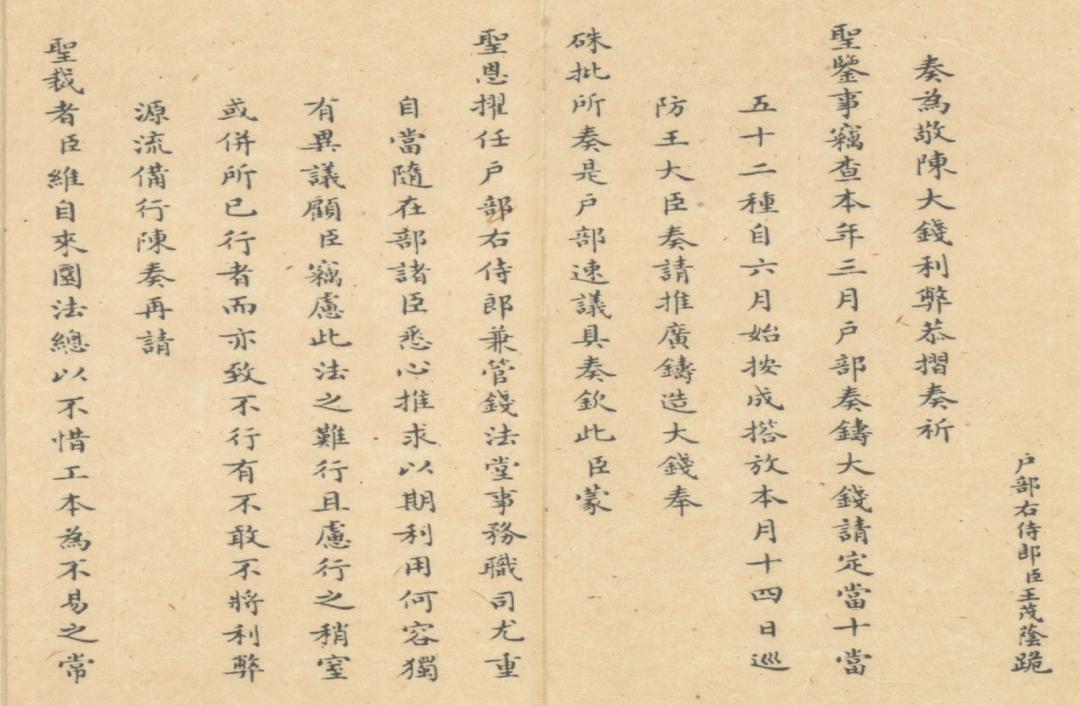 戶部右侍郎臣王茂蔭跪
奏為敬陳大錢利弊恭摺奏祈
聖鑒事竊查本年三月戶部奏鑄大錢請定當十當
五十二種自六月始按成搭放本月十四日巡
防王大臣奏請推廣鑄造大錢奉
硃批所奏是戶部速議具奏欽此臣蒙
聖恩擢任戶部右侍郎兼管錢法堂事務職司尤重
自當隨在部諸臣悉心推求以期利用何容獨
有異議顧臣竊慮此法之難行且慮行之稍窒
或併所已行者而亦致不行有不敢不將利弊
源流備行陳奏再請
聖裁者臣維自來圜法總以不惜工本為不易之常